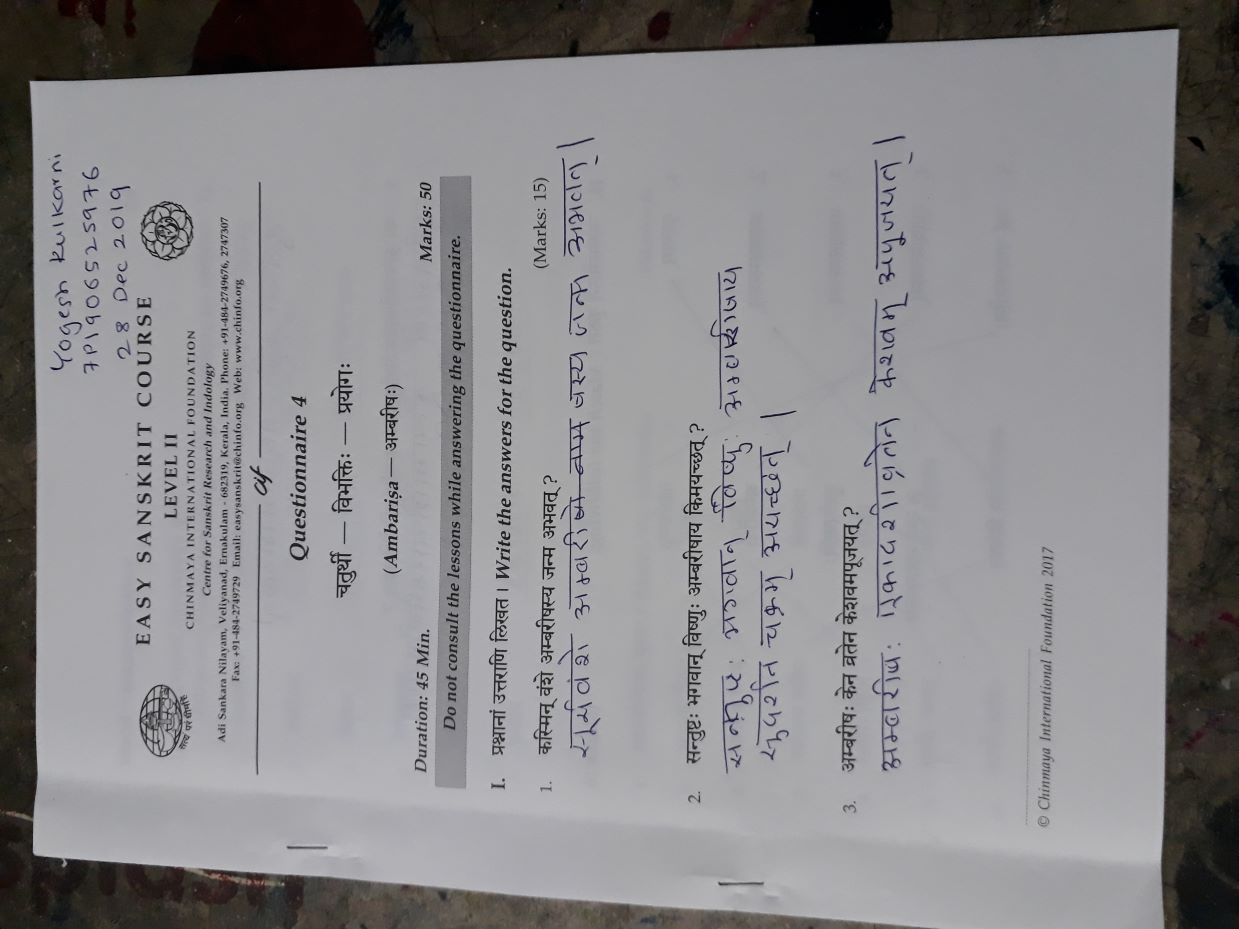 Yogesh Kulkarni
7P1906525976
28 Dec 2019
EASY SANSKRIT COURSE
LEVEL II
CHINMAYA INTERNATIONAL FOUNDATION
Centre for Sanskrit Research and Indology
Adi Sankara Nilayam, Veliyanad, Ernakulam - 682319, Kerala, India. Phone: +91-484-2749676, 2747307
Fax: +91-484-2749729 Email: easysanskrit@chinfo.org Web: www.chinfo.org
सत्यं परं धीमहि
Questionnaire 4
चतुर्थी — विभक्तिः — प्रयोगः
(Ambariṣa — अम्बरीषः)
Duration: 45 Min. Marks: 50
Do not consult the lessons while answering the questionnaire.
I. प्रश्नानां उत्तराणि लिखत । Write the answers for the question.
(Marks: 15)
1. कस्मिन् वंशे अम्बरीषस्य जन्म अभवत् ?
सूर्यवंशे अम्बरीषस्य जन्म अभवत् |
2. सन्तुष्टः भगवान् विष्णुः अम्बरीषाय किमयच्छत् ?
सन्तुष्टः भगवान् विष्णुः अम्बरीषाय
सुदर्शन चक्रम् अयच्छत् |
3. अम्बरीषः केन व्रतेन केशवमपूजयत् ?
अम्बरीषः एकादशीव्रतेन केशवम् अपूजयत् |
© Chinmaya International Foundation 2017